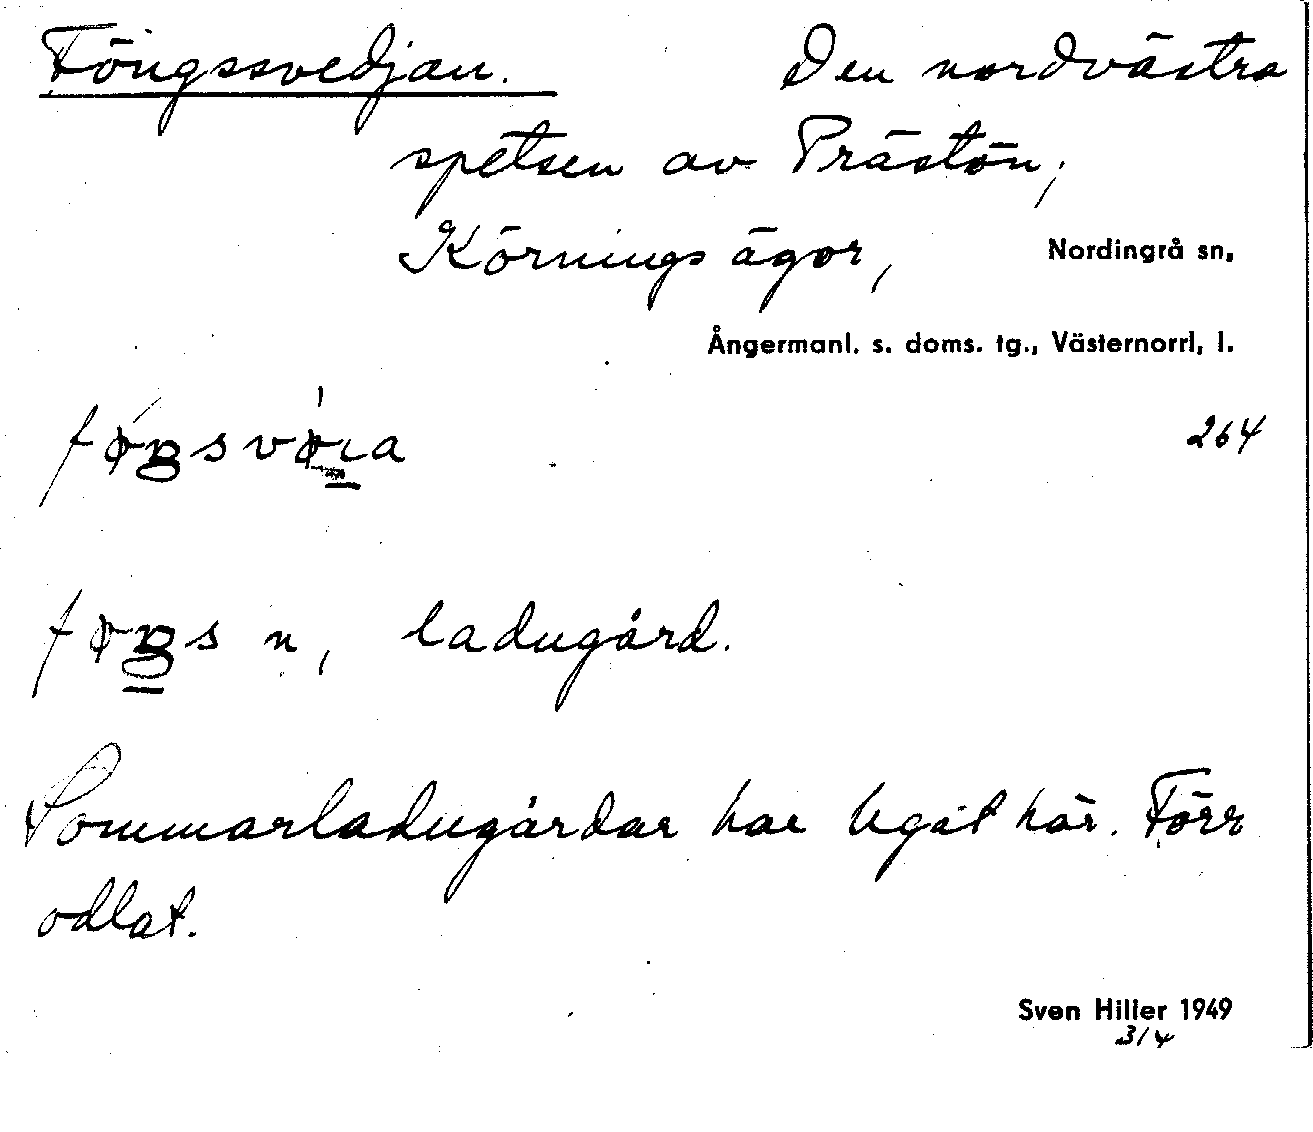 Föngssvedjan. Den nordvästra
spetsen av Prästön,
Körnings ägor, Nordingrå sn,
Ångermanl. s. doms. tg., Västernorrl, l.
264
n, ladugård.
Sommarladugårdar har legat här. Förr
odlat.
Sven Hiller 1949
3/4